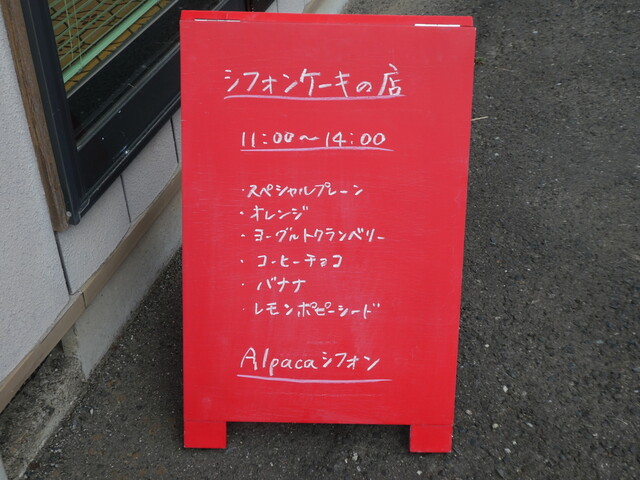 シフォンケーキの店
11:00〜14:00
・スペシャルプレーン
・オレンジ
・ヨーグルトクランベリー
・コーヒーチョコ
・バナナ
・レモンポピーシード
Alpacaシフォン